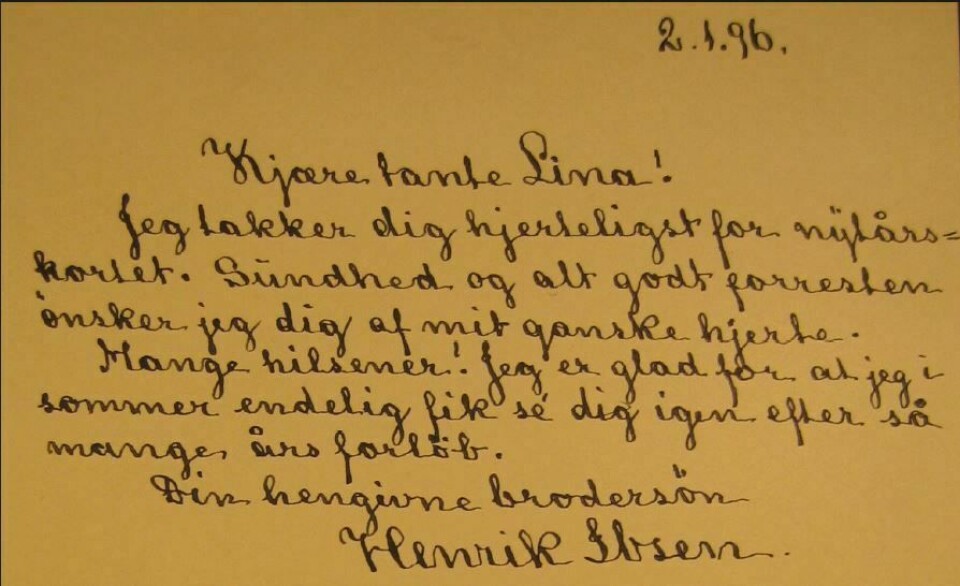 2.1.96.
Kjære tante Lina!
Jeg takker dig hjerteligst for nytårs=
kortet. Sundhed og alt godt forresten
önsker jeg dig af mit ganske hjerte.
Mange hilsener! Jeg er glad for at jeg i
sommer endelig fik sé dig igen efter så
mange års forløb.
Din hengivne brodersön
Henrik Ibsen.